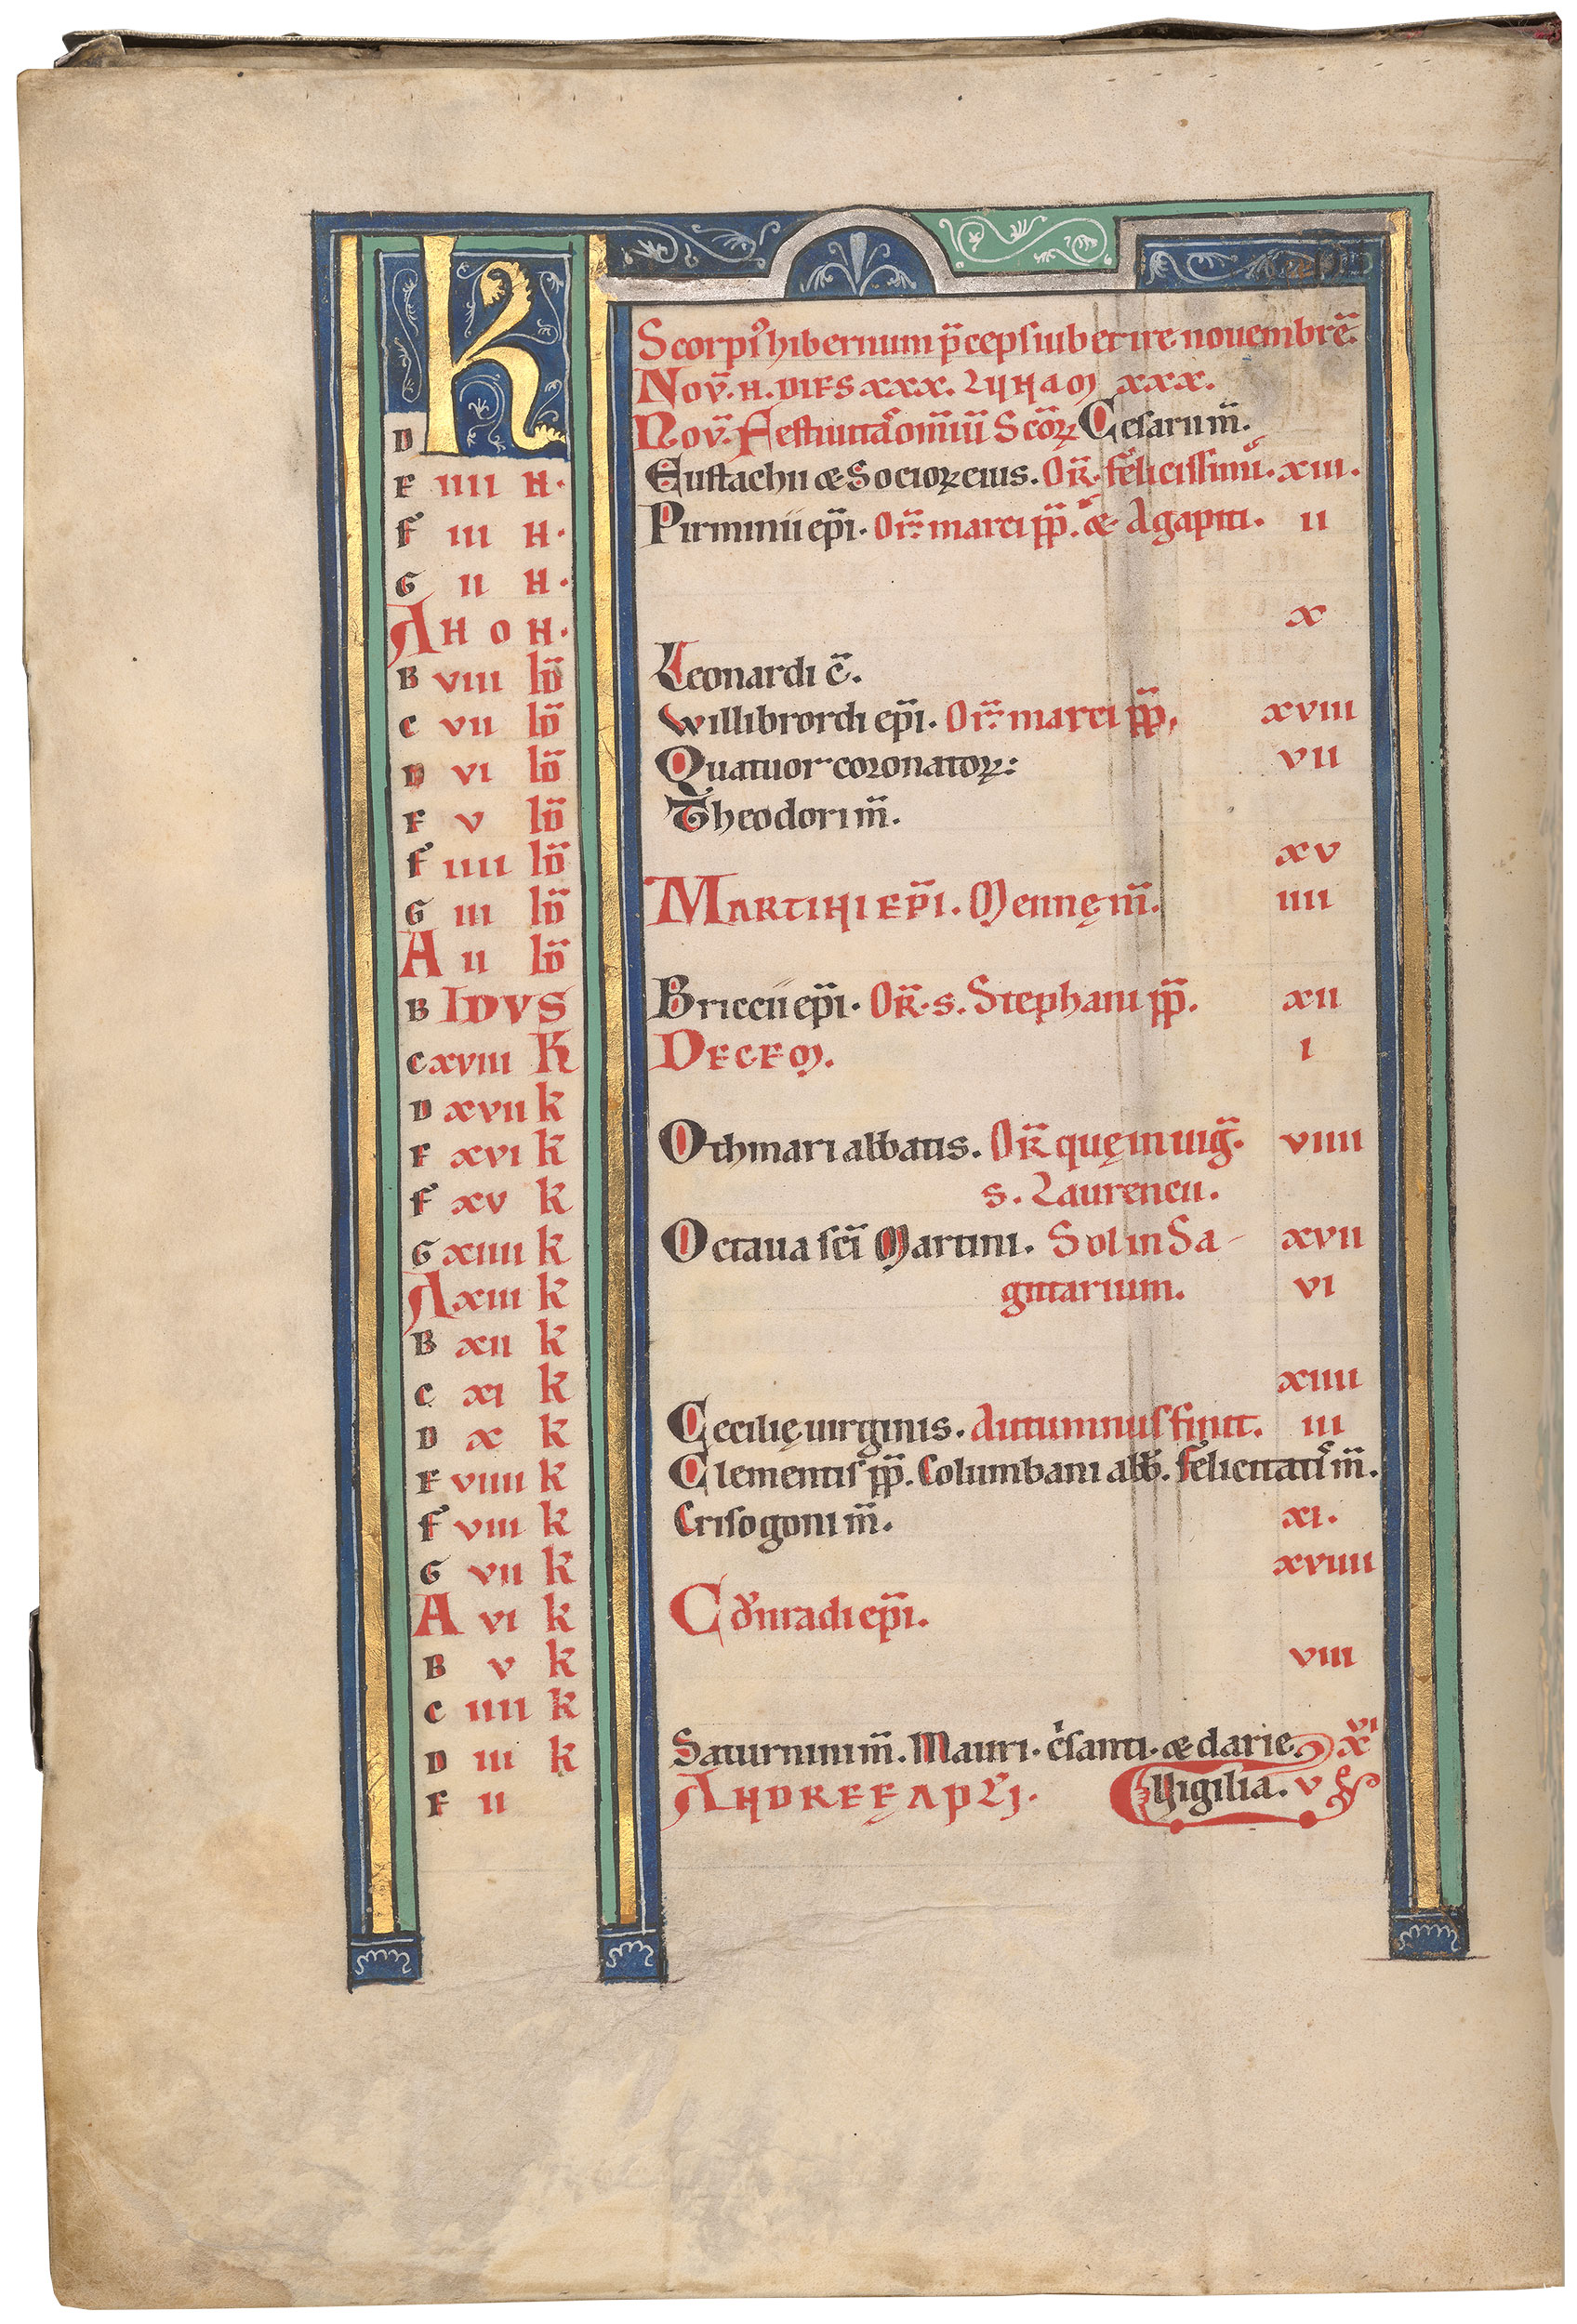 K
Scorpi᷒ hibernum p̄ceps iubet ire nouembrē.
Nov̄. H. DIES xxx. LVHAM xxx.
D Nov̄. Festiuitas omīū Scōꝝ Cesarii m̄.
E IIII H. Eustachii & Socioꝝ eius. OR̄. felicissimū. xiii.
F III H. Pirminii ep̄i. Or̄. marci pp̄. & Agapiti. ii
G II H.
A H O H. x
B VIII ID̄ Leonardi c̄.
C VII ID̄ Willibrordi ep̄i. Or̄. marci pp̄. xviii
D VI ID̄ Quatuor coronatoꝝ:
vii
E V ID̄ Theodori m̄.
F IIII ID̄ xv
G III ID̄ MARTINI EP̄I. Mennę m̄. iiii
A II ID̄
B IDVS Briccii ep̄i. OR̄. s. Stephani pp̄. xii
C xviii K DECEM. i
D xvii k
E xvi k Othmari abbatis. OR̄ quę in uiḡ. viiii
F xv k s. Laurencii.
G xiiii k Octaua sc̄i Martini. Sol in Sa- xvii
A xiii k gittarium. vi
B xii k
C xi k xiiii
D x k Cecilię uirginis. Autumnus finit. iii
E viiii k Clementis pp̄. Columbani abb̄. Felicitatis m̄.
F viii k Crisogoni m̄. xi.
G vii k xviiii
A vi k Cōnradi ep̄i.
B v k viii
C iiii k
D iii k Saturnini m̄. Mauri. c̄santi. & darie. xvi
E ii ANDREĘ APL̄I. Vigilia. v